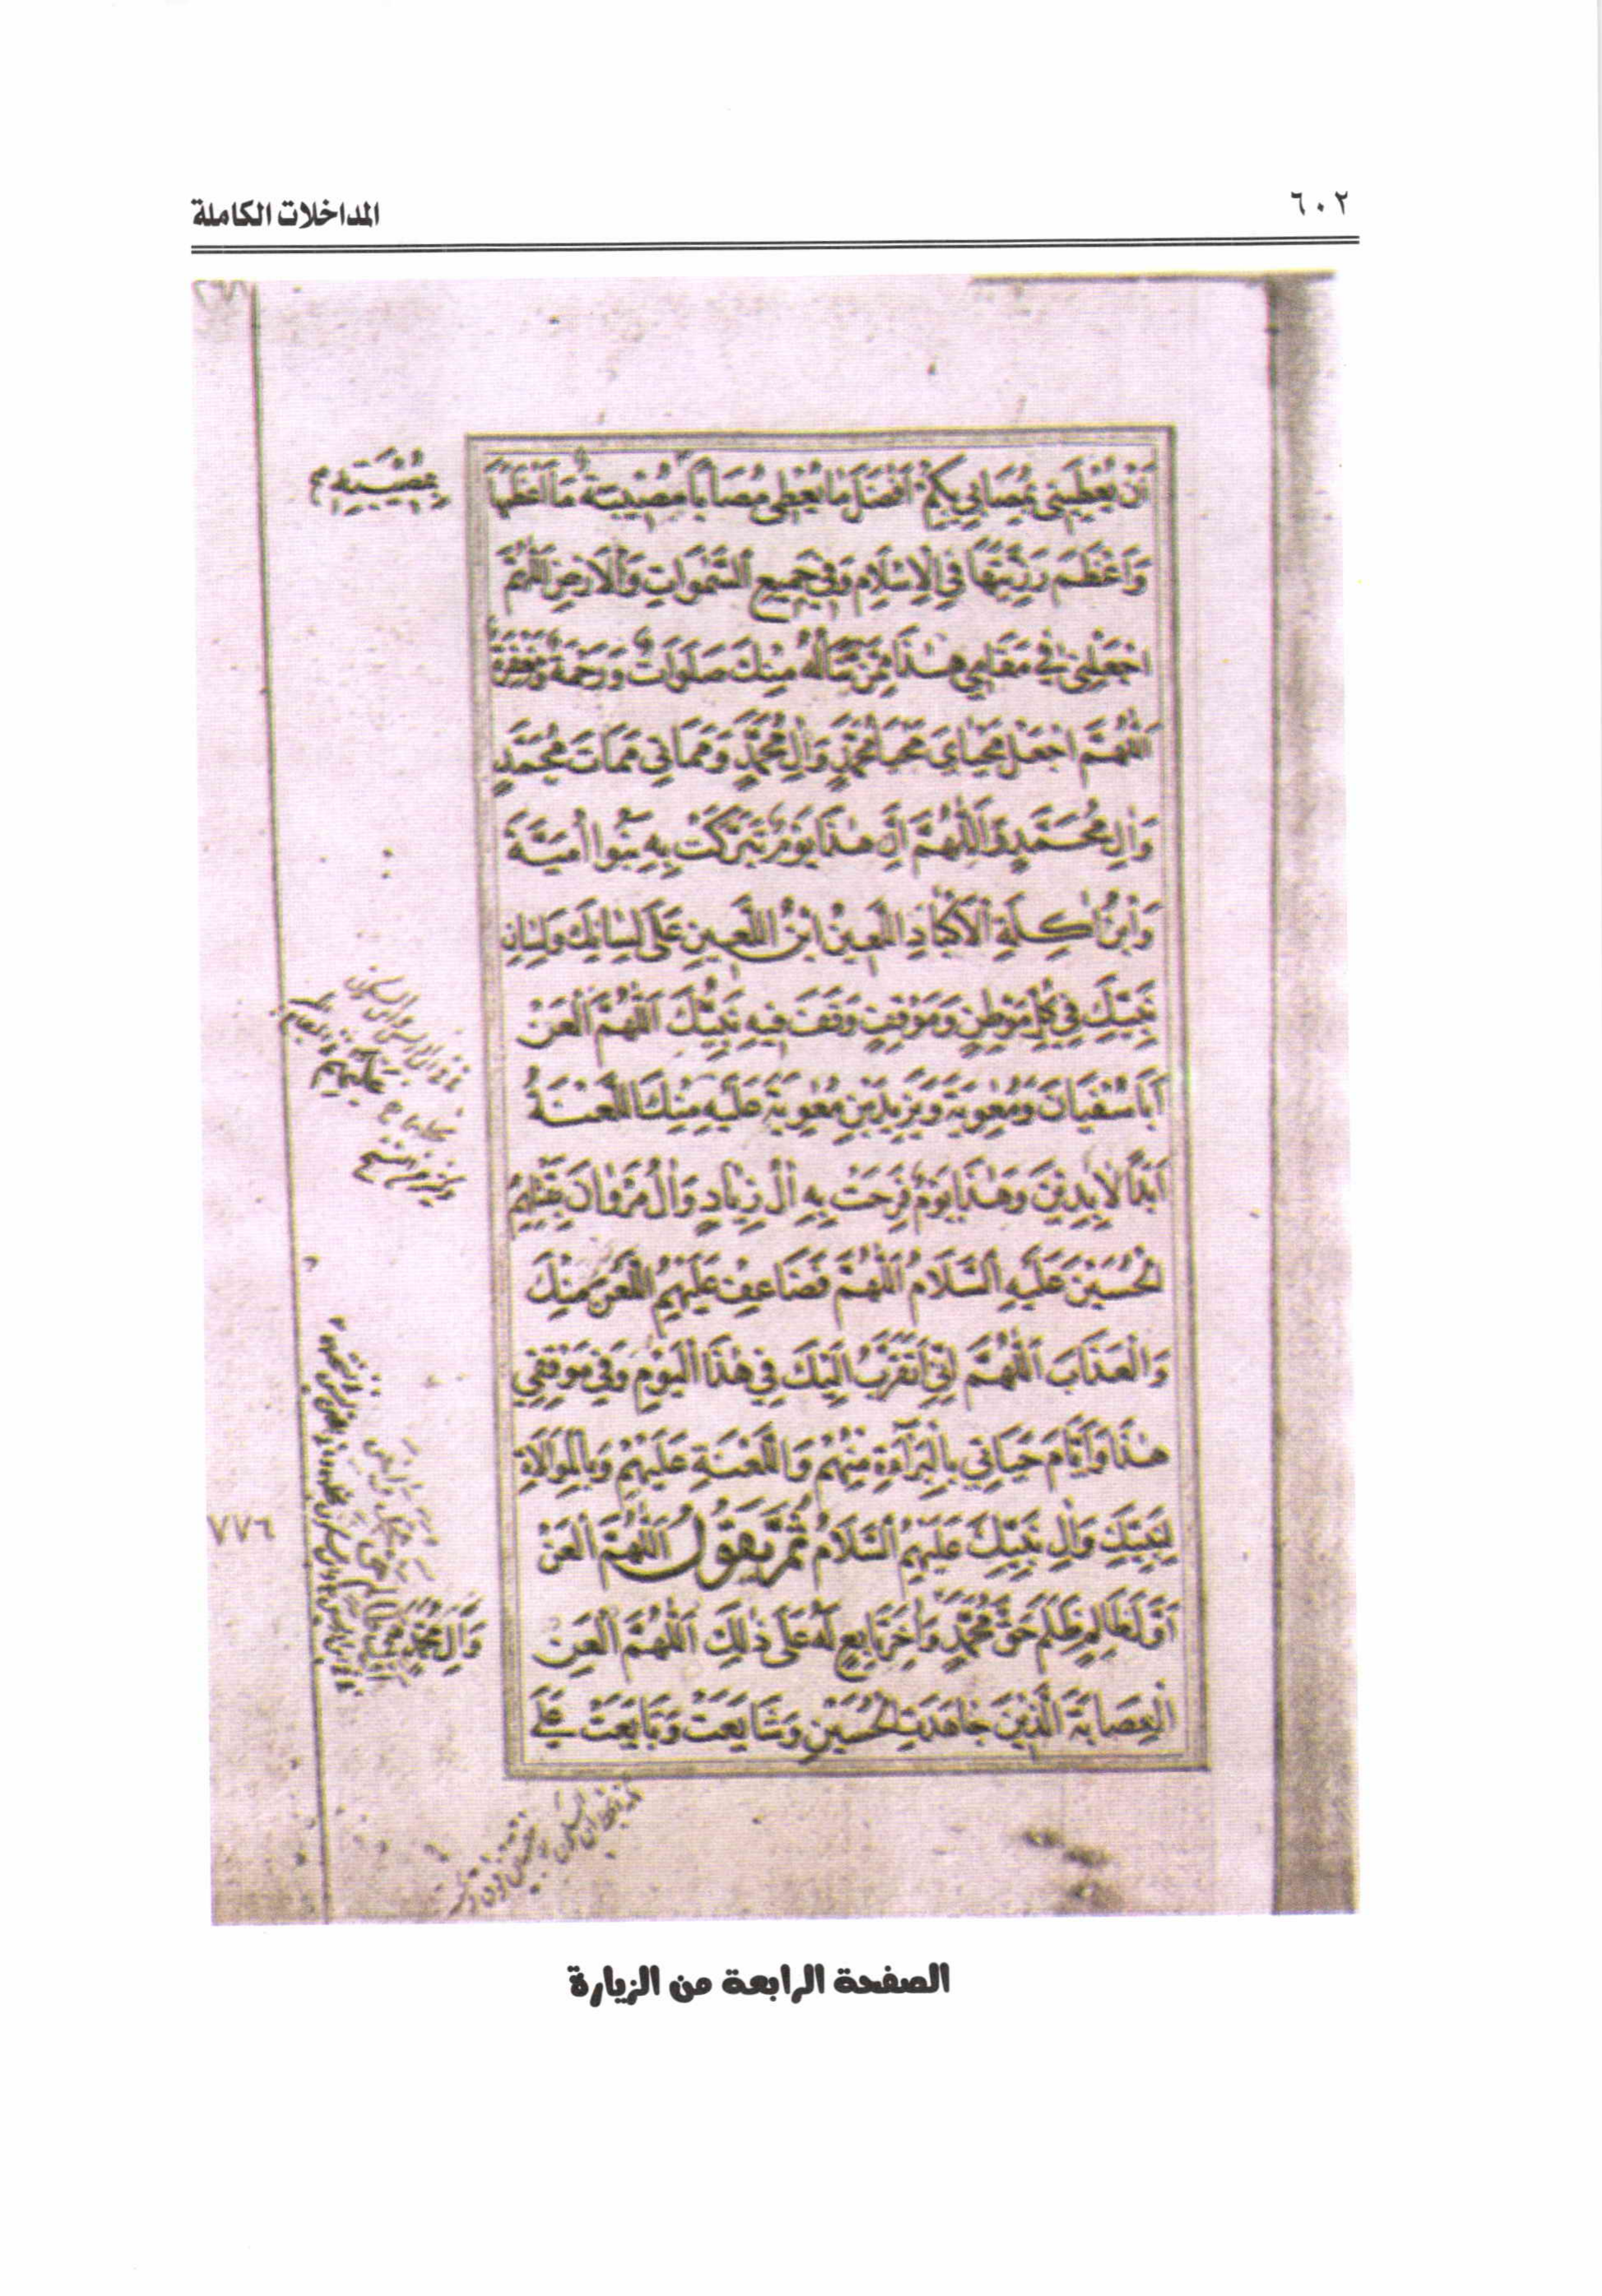 ٦٠٢
المداخلات الكاملة
أَنْ يُعْطِيَنِي بِمُصَابِي بِكُمْ أَفْضَلَ مَا يُعْطِي مُصَابًا مُصِيبَةً مَا أَعْظَمَهَا
وَأَعْظَمَ رَزِيَّتَهَا فِي الْإِسْلَامِ وَفِي جَمِيعِ السَّمٰوَاتِ وَالْأَرْضِ اللّٰهُمَّ
اجْعَلْنِي فِي مَقَامِي هٰذَا مِمَّنْ تَنَالُهُ مِنْكَ صَلَوَاتٌ وَرَحْمَةٌ وَمَغْفِرَةٌ
اَللّٰهُمَّ اجْعَلْ مَحْيَايَ مَحْيَا مُحَمَّدٍ وَآلِ مُحَمَّدٍ وَمَمَاتِي مَمَاتَ مُحَمَّدٍ
وَآلِ مُحَمَّدٍ اَللّٰهُمَّ اِنَّ هٰذَا يَوْمٌ تَبَرَّكَتْ بِهِ بَنُوا أُمَيَّةَ
وَابْنُ آكِلَةِ الْأَكْبَادِ اللَّعِينُ ابْنُ اللَّعِينِ عَلَى لِسَانِكَ وَلِسَانِ
نَبِيِّكَ فِي كُلِّ مَوْطِنٍ وَمَوْقِفٍ وَقَفَ فِيهِ نَبِيُّكَ اَللّٰهُمَّ الْعَنْ
أَبَا سُفْيَانَ وَمُعٰوِيَةَ وَيَزِيدَ بْنَ مُعٰوِيَةَ عَلَيْهِ مِنْكَ اللَّعْنَةُ
أَبَدَ الْآبِدِينَ وَهٰذَا يَوْمٌ فَرِحَتْ بِهِ آلُ زِيَادٍ وَآلُ مَرْوَانَ بِقَتْلِهِمُ
الْحُسَيْنَ عَلَيْهِ السَّلَامُ اَللّٰهُمَّ فَضَاعِفْ عَلَيْهِمُ اللَّعْنَ مِنْكَ
وَالْعَذَابَ اَللّٰهُمَّ إِنِّي أَتَقَرَّبُ إِلَيْكَ فِي هٰذَا الْيَوْمِ وَفِي مَوْقِفِي
هٰذَا وَأَيَّامَ حَيَاتِي بِالْبَرَآءَةِ مِنْهُمْ وَاللَّعْنَةِ عَلَيْهِمْ وَبِالْمُوَالَاةِ
لِنَبِيِّكَ وَآلِ نَبِيِّكَ عَلَيْهِمُ السَّلَامُ ثُمَّ يَقُولُ اَللّٰهُمَّ الْعَنْ
أَوَّلَ ظَالِمٍ ظَلَمَ حَقَّ مُحَمَّدٍ وَآخِرَ تَابِعٍ لَهُ عَلَى ذٰلِكَ اَللّٰهُمَّ الْعَنِ
الْعِصَابَةَ الَّذِينَ جَاهَدَتِ الْحُسَيْنَ وَشَايَعَتْ وَبَايَعَتْ عَلَى
بِمُصِيبَتِهِ
وَآلِ مُحَمَّدٍ
٧٧٦
الصفحة الرابعة من الزيارة